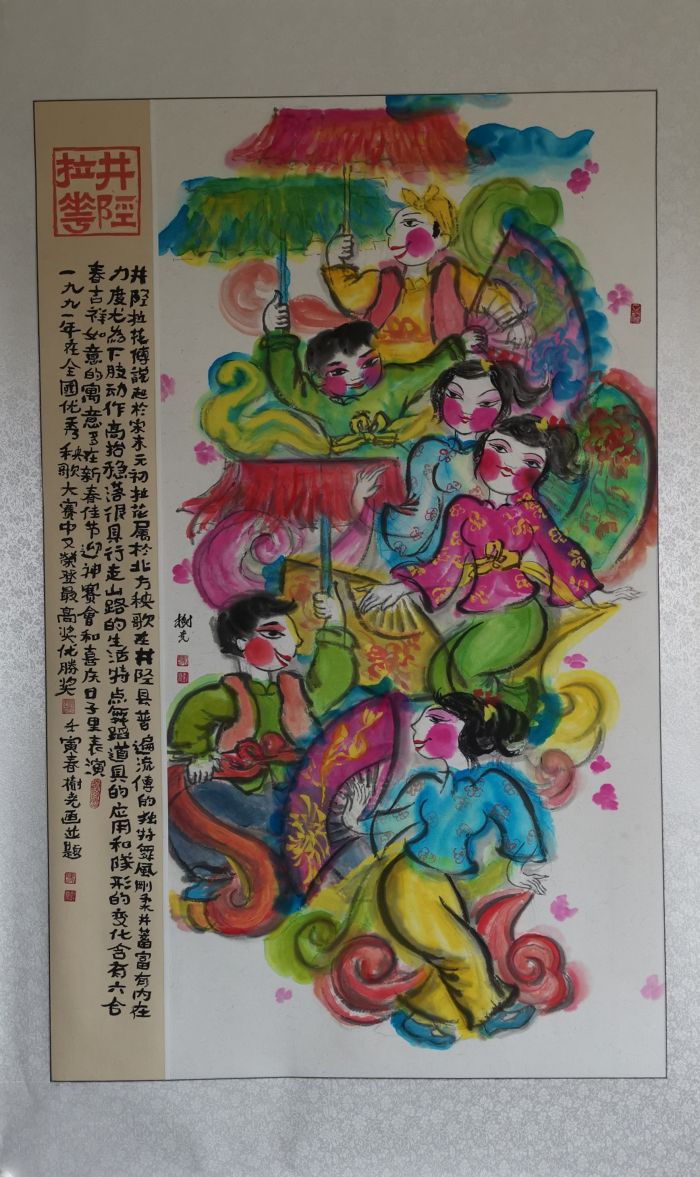 井陉拉花
井陉拉花传説起於宋末元初拉花属於北方秧歌在井陉县普遍流傳的独特舞風刚柔并蓄富有内在
力度尤為下肢动作高抬稳落很具行走山路的生活特点舞蹈道具的应用和隊形的变化含有六合
春吉祥如意的寓意多在新春佳节迎神赛會和喜庆日子里表演
一九九一年在全國优秀秧歌大赛中又榮登最高奖优勝奖
壬寅春樹尧画並题
樹尧